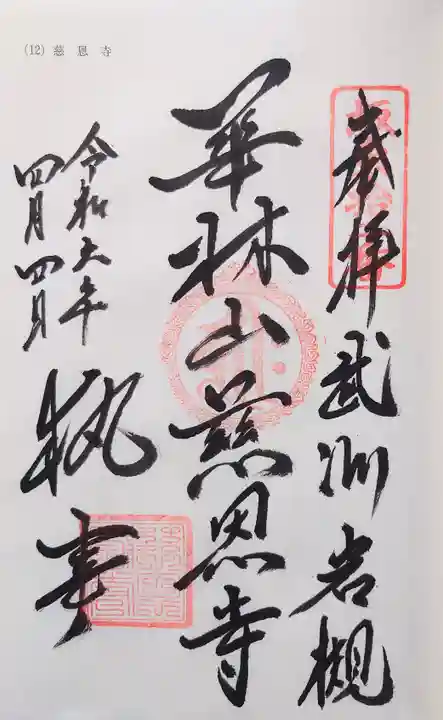 (12) 慈恩寺
奉拝 武州岩槻
華林山慈恩寺
令和六年
四月四日
執事